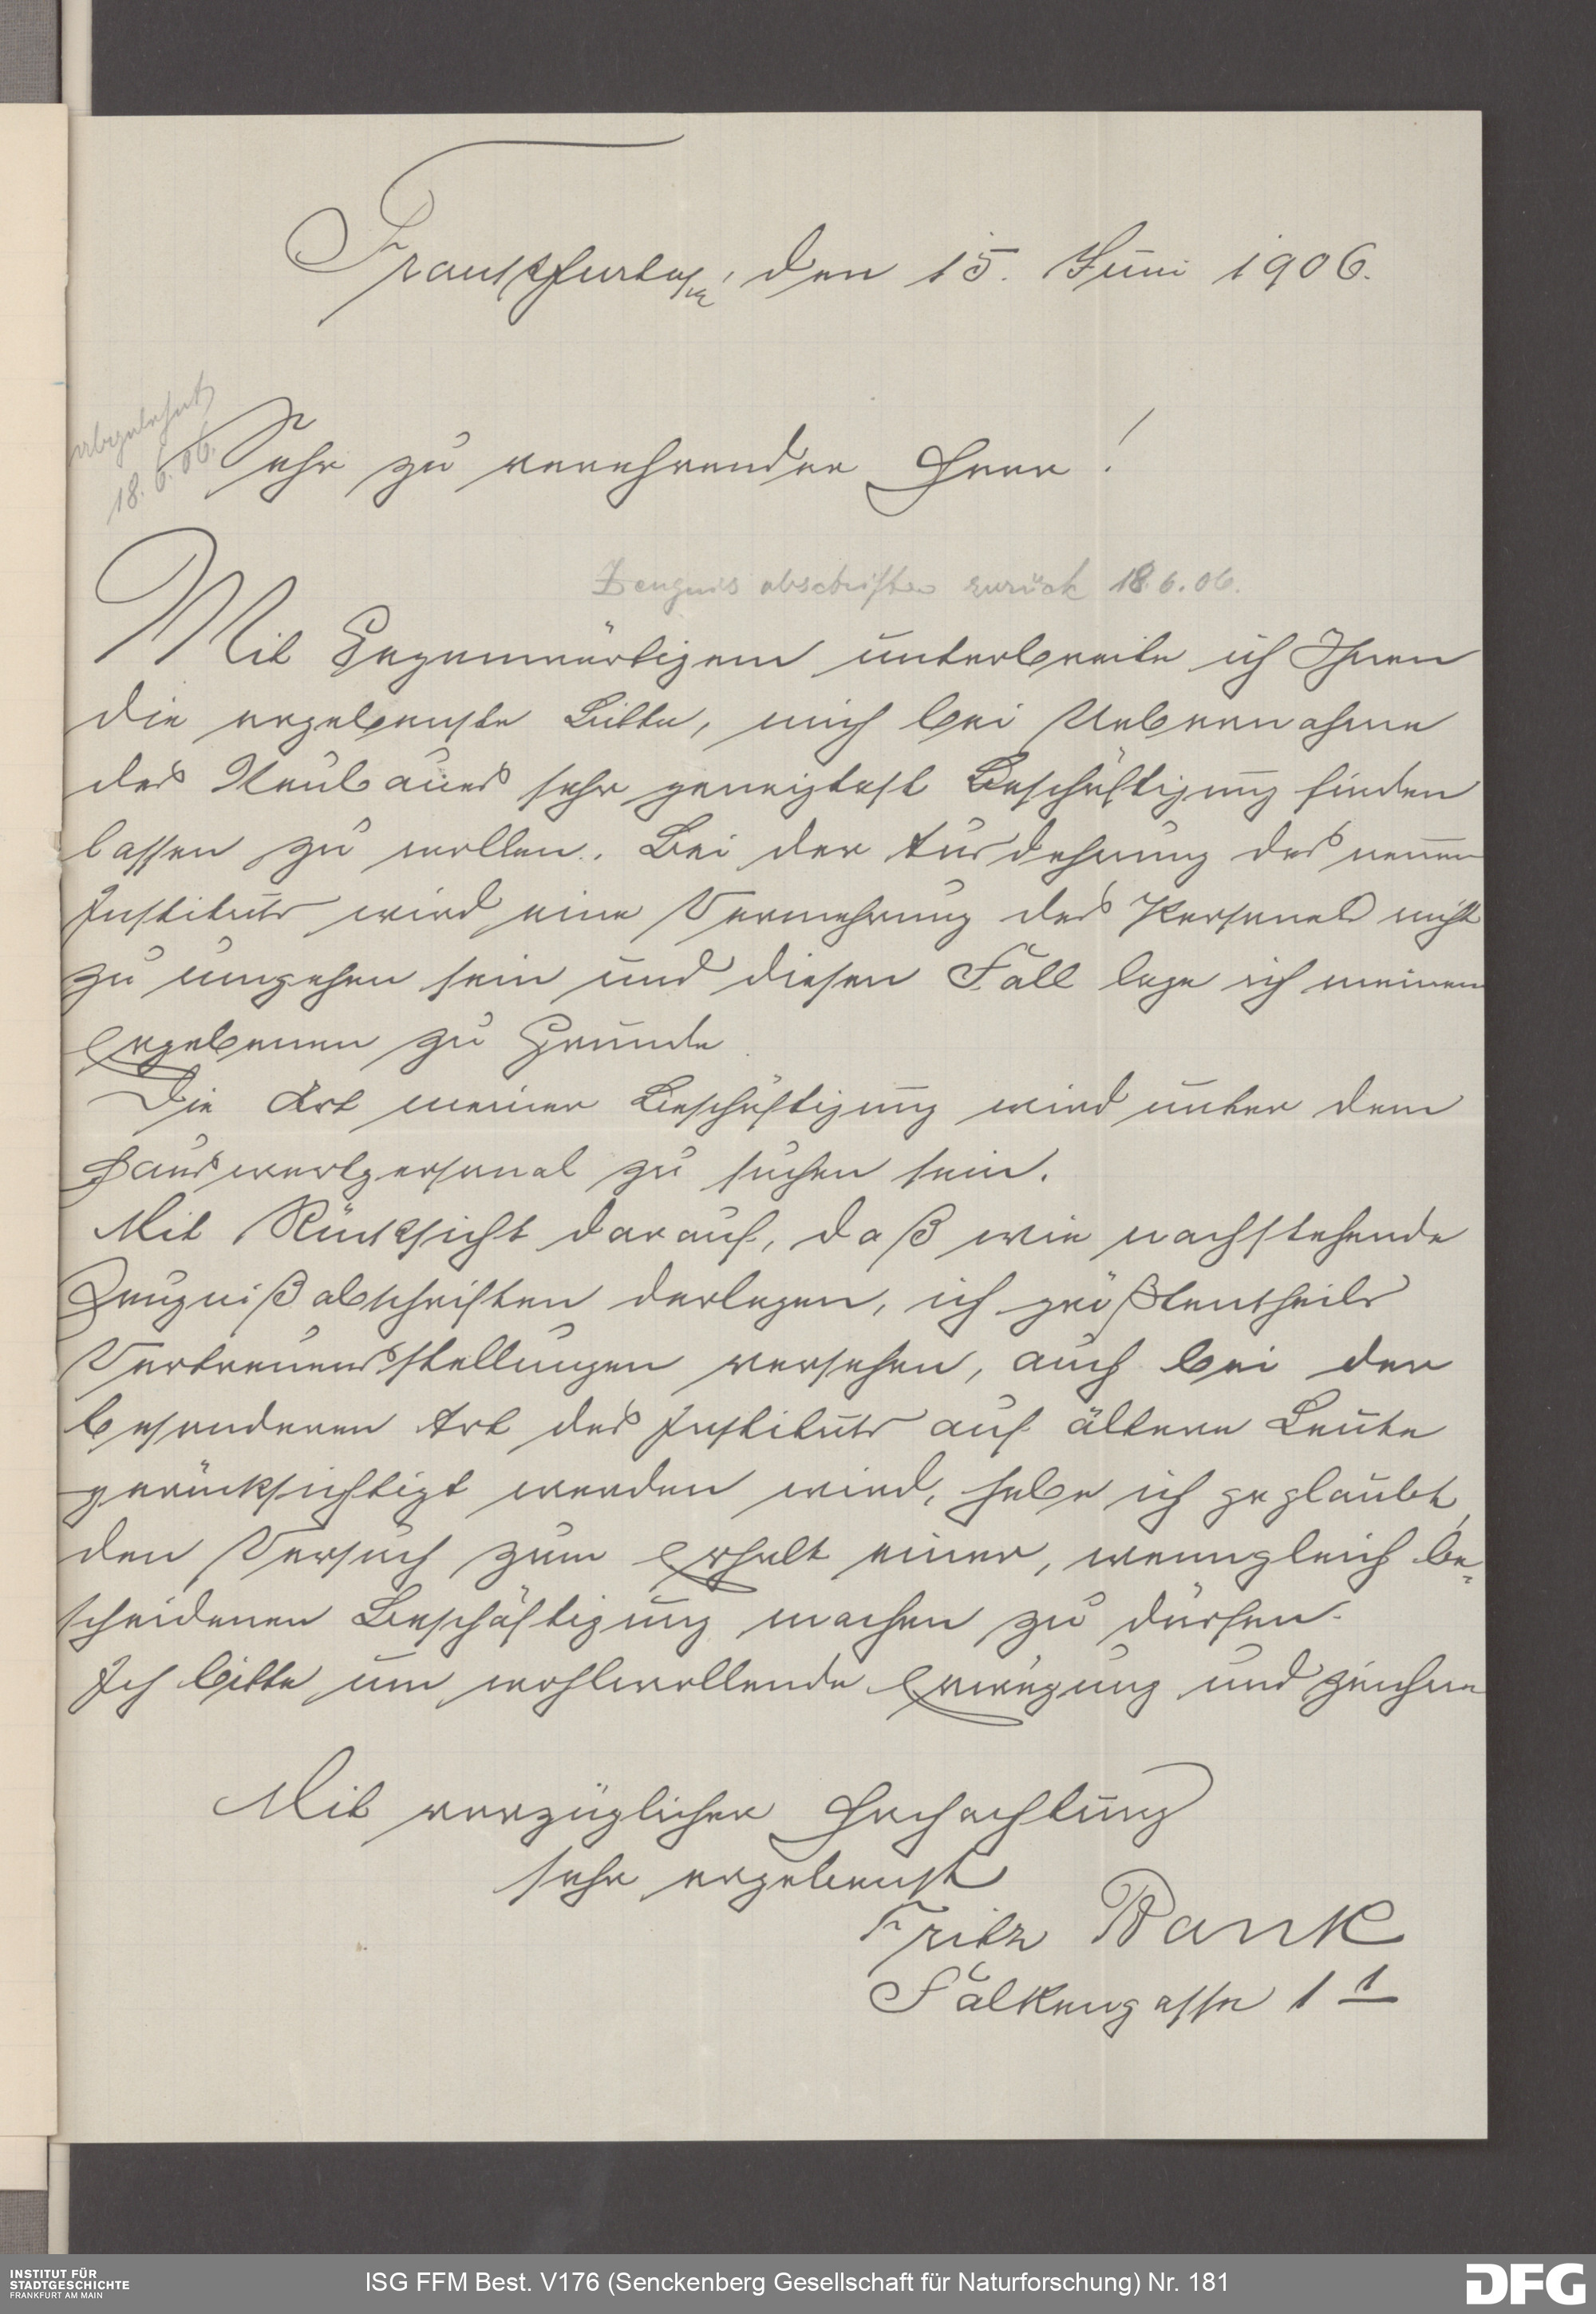 Frankfurt a/m, den 15. Juni 1906.
abgelehnt
18.6.06.
Sehr zu verehrender Herr!
Zeugnis abschriften zurück 18.6.06.
Mit Gegenwärtigem unterbreite ich Ihnen
die ergebenste Bitte, mich bei Uebernahme
des Neubaues sehr geneigtest Beschäftigung finden
lassen zu wollen. Bei der Ausdehnung des neuen
Instituts wird eine Vermehrung des Personals nicht
zu umgehen sein und diesen Fall lege ich meinem
Ergebenen zu Grunde
Die Art meiner Beschäftigung wird unter dem
Hauswartpersonal zu suchen sein.
Mit Rücksicht darauf, daß wie nachstehende
Zeugnißabschriften darlegen, ich größtentheils
Vertrauensstellungen versehen, auch bei der
besonderen Art des Instituts auf ältere Leute
gerücksichtigt werden wird, habe ich geglaubt,
den Versuch zum Erhalt einer, wenngleich be-
scheidenen Beschäftigung machen zu dürfen.
Ich bitte um wohlwollende Erwägung und zeichne
Mit vorzüglicher Hochachtung
sehr ergebenst
Fritz Bank
Falkengasse 1 1
INSTITUT FÜR
STADTGESCHICHTE
FRANKFURT AM MAIN
ISG FFM Best. V176 (Senckenberg Gesellschaft für Naturforschung) Nr. 181
DFG